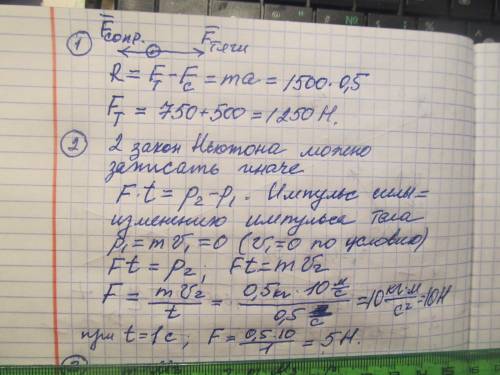 ① F̅сопр. F̅тяги
R = Fт - Fс = ma = 1500·0,5
Fт = 750+500 = 1250 Н.
② 2 закон Ньютона можно
записать иначе
F·t = p₂-p₁. Импульс силы =
изменению импульса тела
p₁ = mV₁ = 0 (V₁=0 по условию)
Ft = p₂, Ft = mV₂
F = mV₂/t = 0,5кг·10 м/с / 0,5 с = 10 кг·м/с² = 10Н
при t=1с, F = 0,5·10/1 = 5Н.